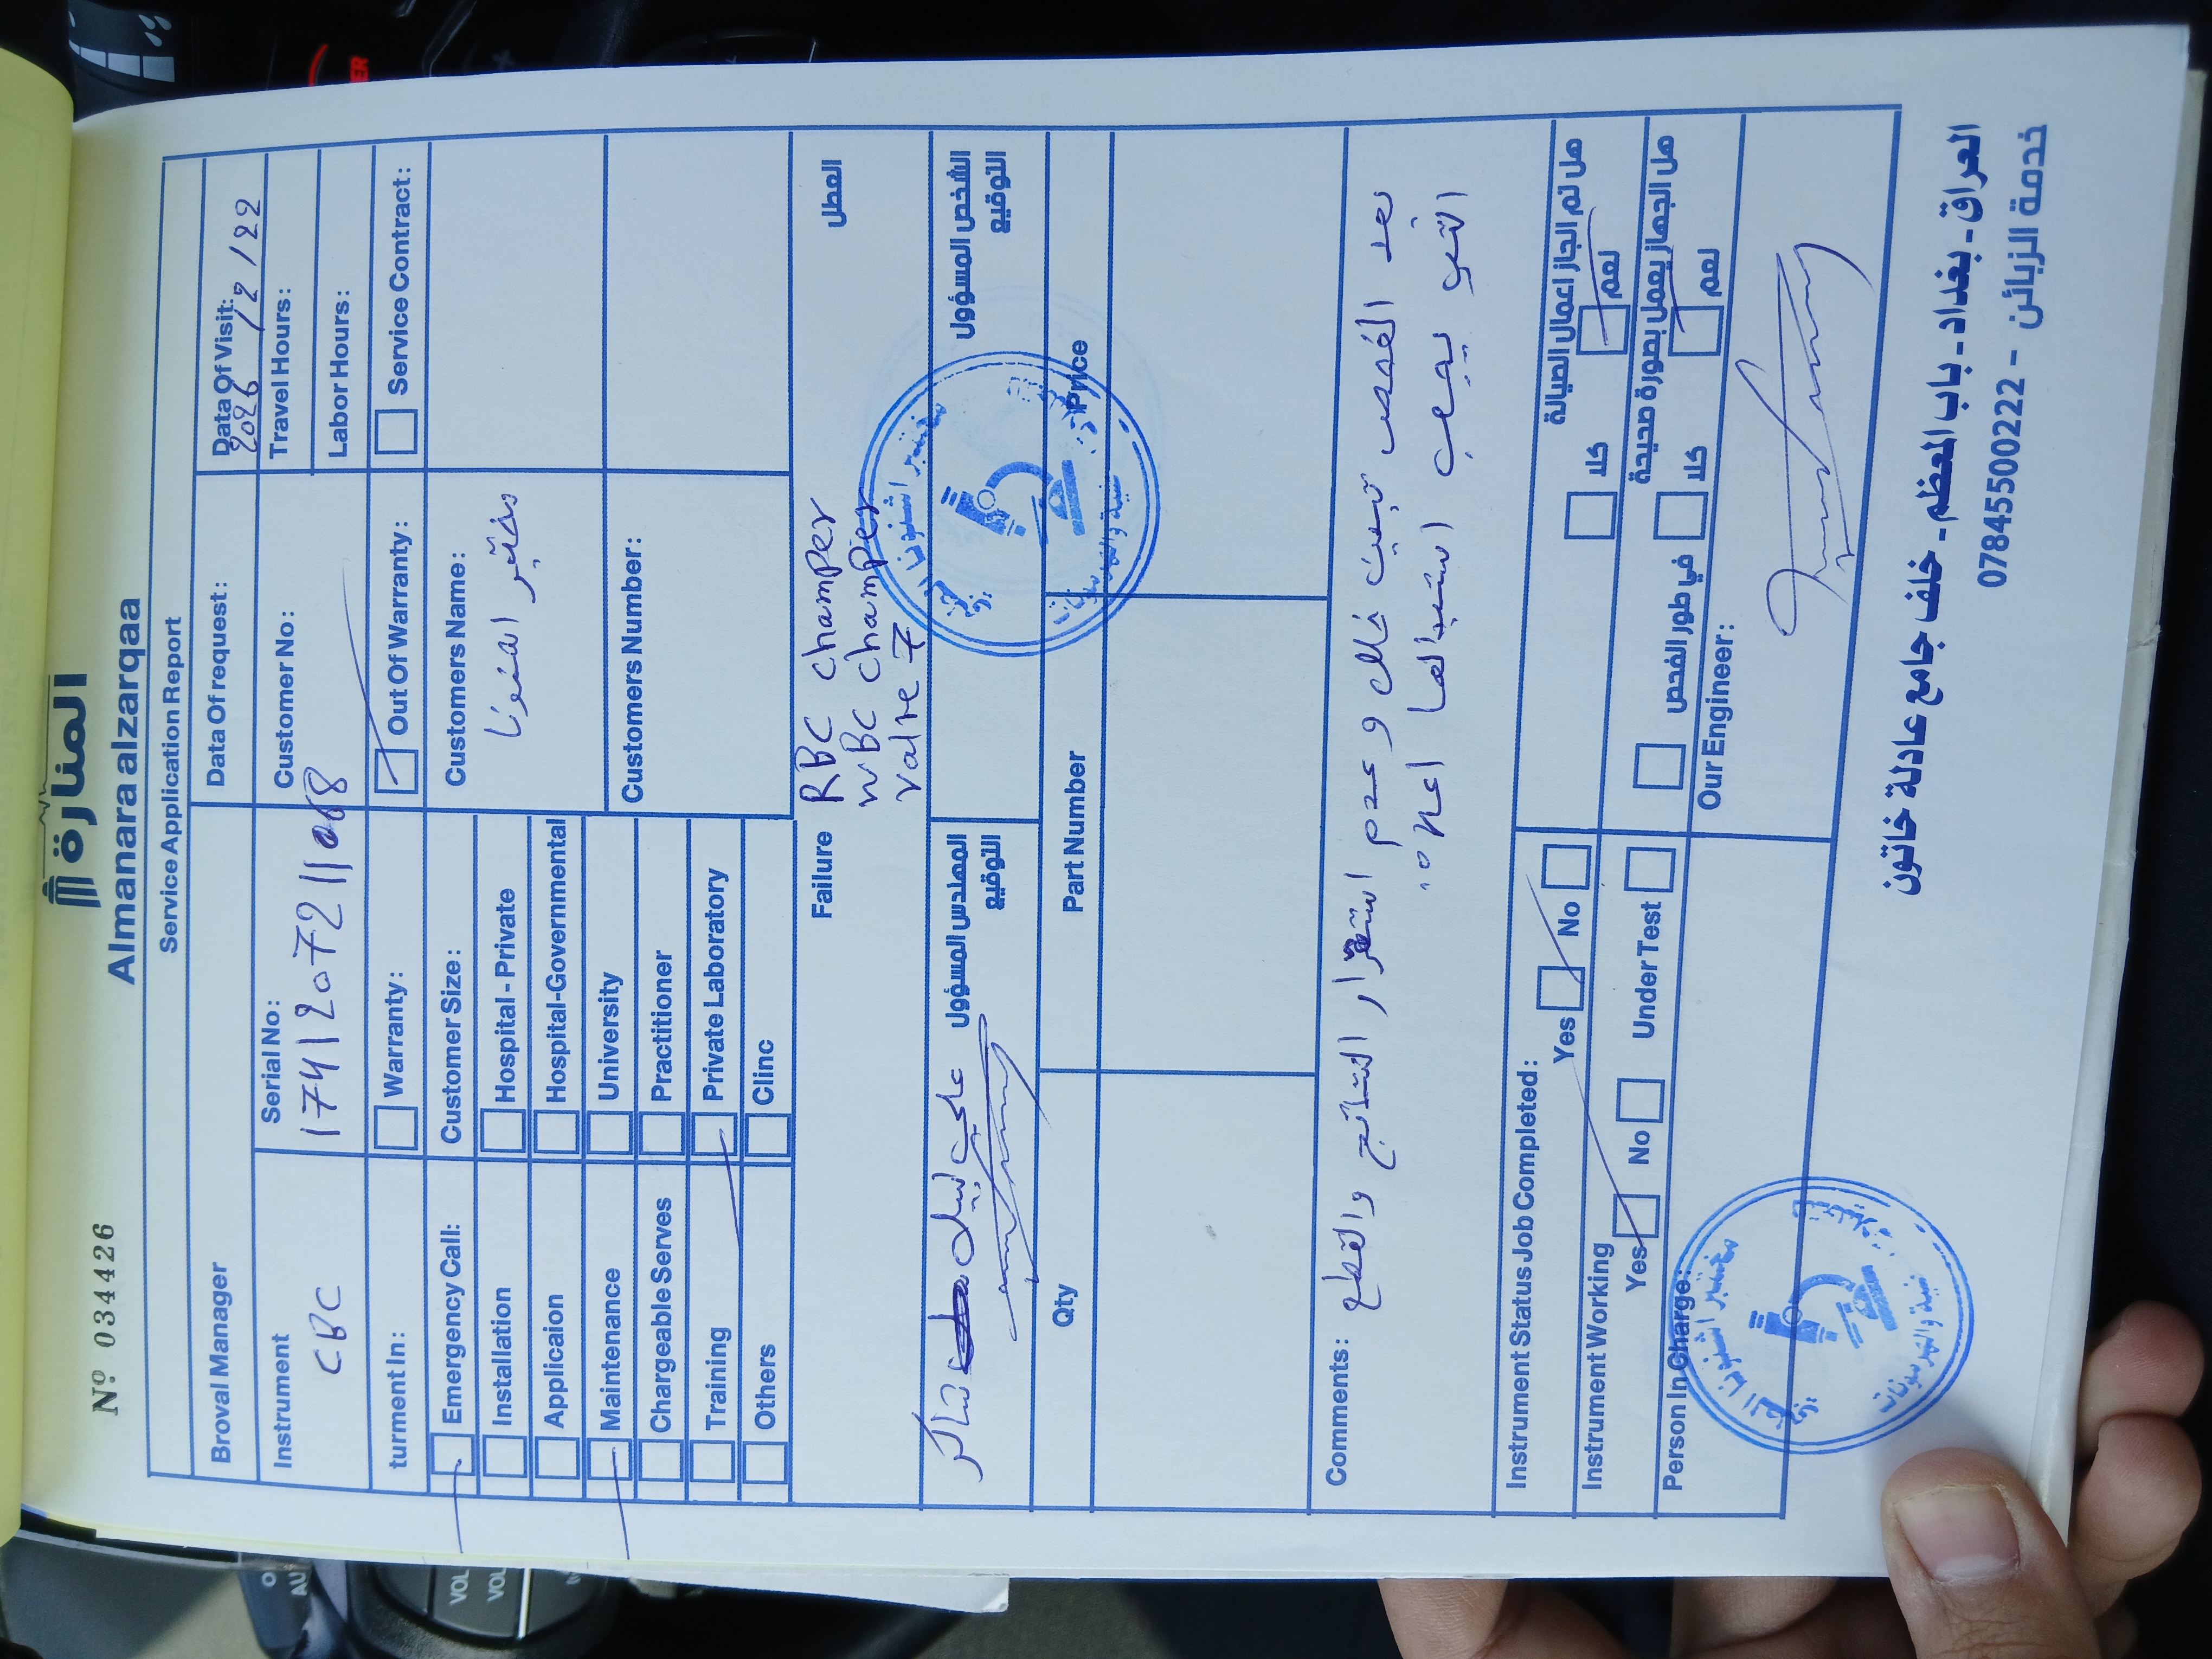 Nº 034426
المنارة
Almanara alzarqaa
Service Application Report
Broval Manager
Data Of request :
Data Of Visit:
2026 / 2 / 22
Instrument
CBC
Serial No :
Customer No :
Travel Hours :
Labor Hours :
turment In :
Warranty :
Out Of Warranty :
Service Contract :
Emergency Call:
Customer Size :
Customers Name :
مختبر اشنونا
Installation
Hospital - Private
Applicaion
Hospital-Governmental
Maintenance
University
Customers Number :
Chargeable Serves
Practitioner
Training
Private Laboratory
Others
Clinc
Failure
العطل
RBC champer
WBC champer
valve 7
المهندس المسؤول
التوقيع
علي نبيل
شاكر
الشخص المسؤول
التوقيع
مختبر اشنونا
Qty
Part Number
Price
Comments :
بعد الفحص تبين خلل و عدم استقرار النتائج والقطع
التي يجب استبدالها اعلاه
Instrument Status Job Completed :
Yes
No
هل تم انجاز اعمال الصيانة
كلا
نعم
Instrument Working
Yes
No
Under Test
هل الجهاز يعمل بصورة صحيحة
في طور الفحص
كلا
نعم
Person In Charge :
Our Engineer :
مختبر اشنونا
العراق - بغداد - باب المعظم - خلف جامع عادلة خاتون
خدمة الزبائن - 07845500222